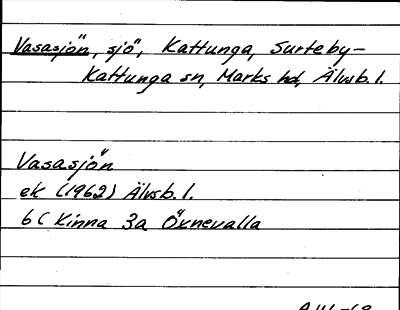 Vasasjön, sjö, Kattunga, Surteby-
Kattunga sn, Marks hd, Älvsb. l.
Vasasjön
ek (1962) Älvsb. l.
6C Kinna 3a Öxnevalla